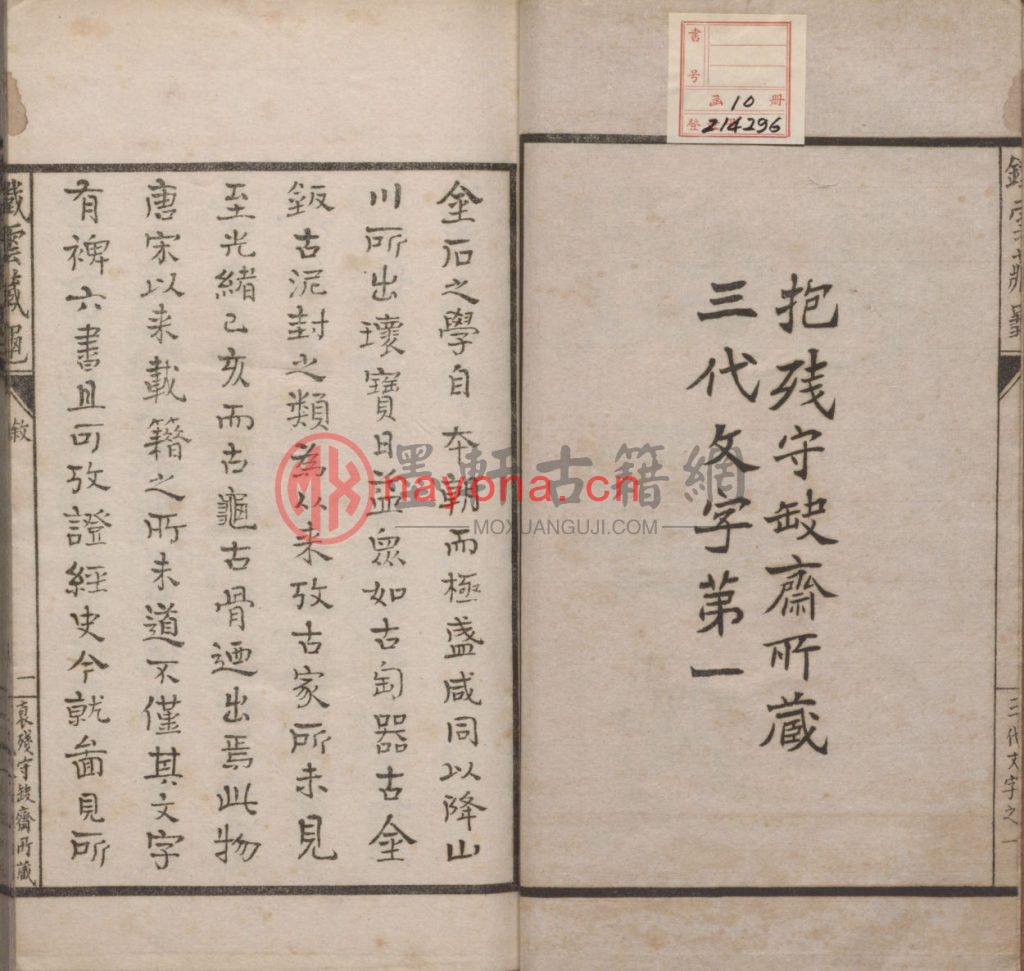 抱残守缺齋所藏
三代文字第一
鐵雲藏龜
三代文字之一
書号
函 10 冊
登 214296
金石之學自本朝而極盛咸同以降山
川所出瓌寶日益衆如古匋器古金
鈑古泥封之類為从来攷古家所未見
至光緒己亥而古龜古骨迺出焉此物
唐宋以来載籍之所未道不僅其文字
有裨六書且可攷證經史今就啚見所
鐵雲藏龜
敘
一
裒殘守缺齋所藏
墨軒古籍網
nayona.cn
MOXUANGUJI.COM